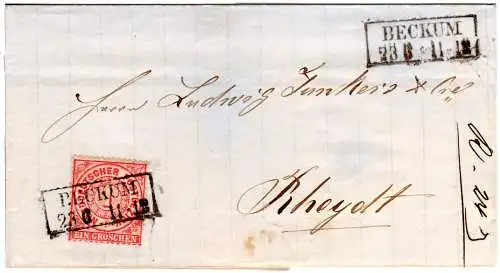 BECKUM
23 6 11-12
Herrn Ludwig Junkers & Cie
Rheydt
BECKUM
23 6 11-12
EIN GROSCHEN